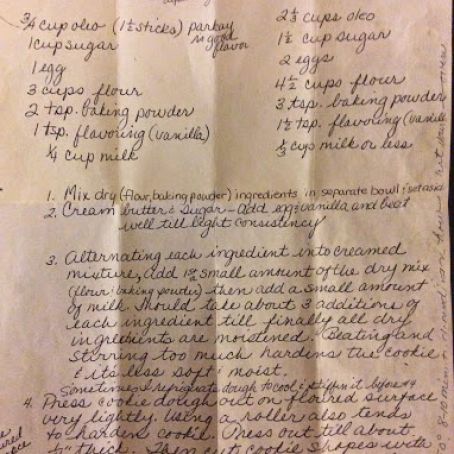 3/4 cup oleo (1 1/2 sticks) parkay
good flavor
1 cup sugar
1 egg
3 cups flour
2 tsp. baking powder
1 tsp. flavoring (vanilla)
1/4 cup milk
cups oleo
1 1/2 cup sugar
2 eggs
4 1/2 cups flour
3 tsp. baking powder
1 1/2 tsp. flavoring (vanilla)
1/3 cup milk or less
1. Mix dry (flour, baking powder) ingredients in separate bowl; set aside
2. Cream butter & sugar - Add egg & vanilla and beat
well till light consistency
3. Alternating each ingredient into creamed
mixture, add 1st small amount of the dry mix
(flour & baking powder) then add a small amount
of milk. Should take about 3 additions of
each ingredient till finally all dry
ingredients are moistened. Beating and
stirring too much hardens the cookie
& its less soft & moist.
Sometimes I refrigerate dough to cool & stiffen it before #4
4. Press cookie dough out on floured surface
very lightly. Using a roller also tends
to harden cookie. Press out till about
thick. Then cut cookie shapes with